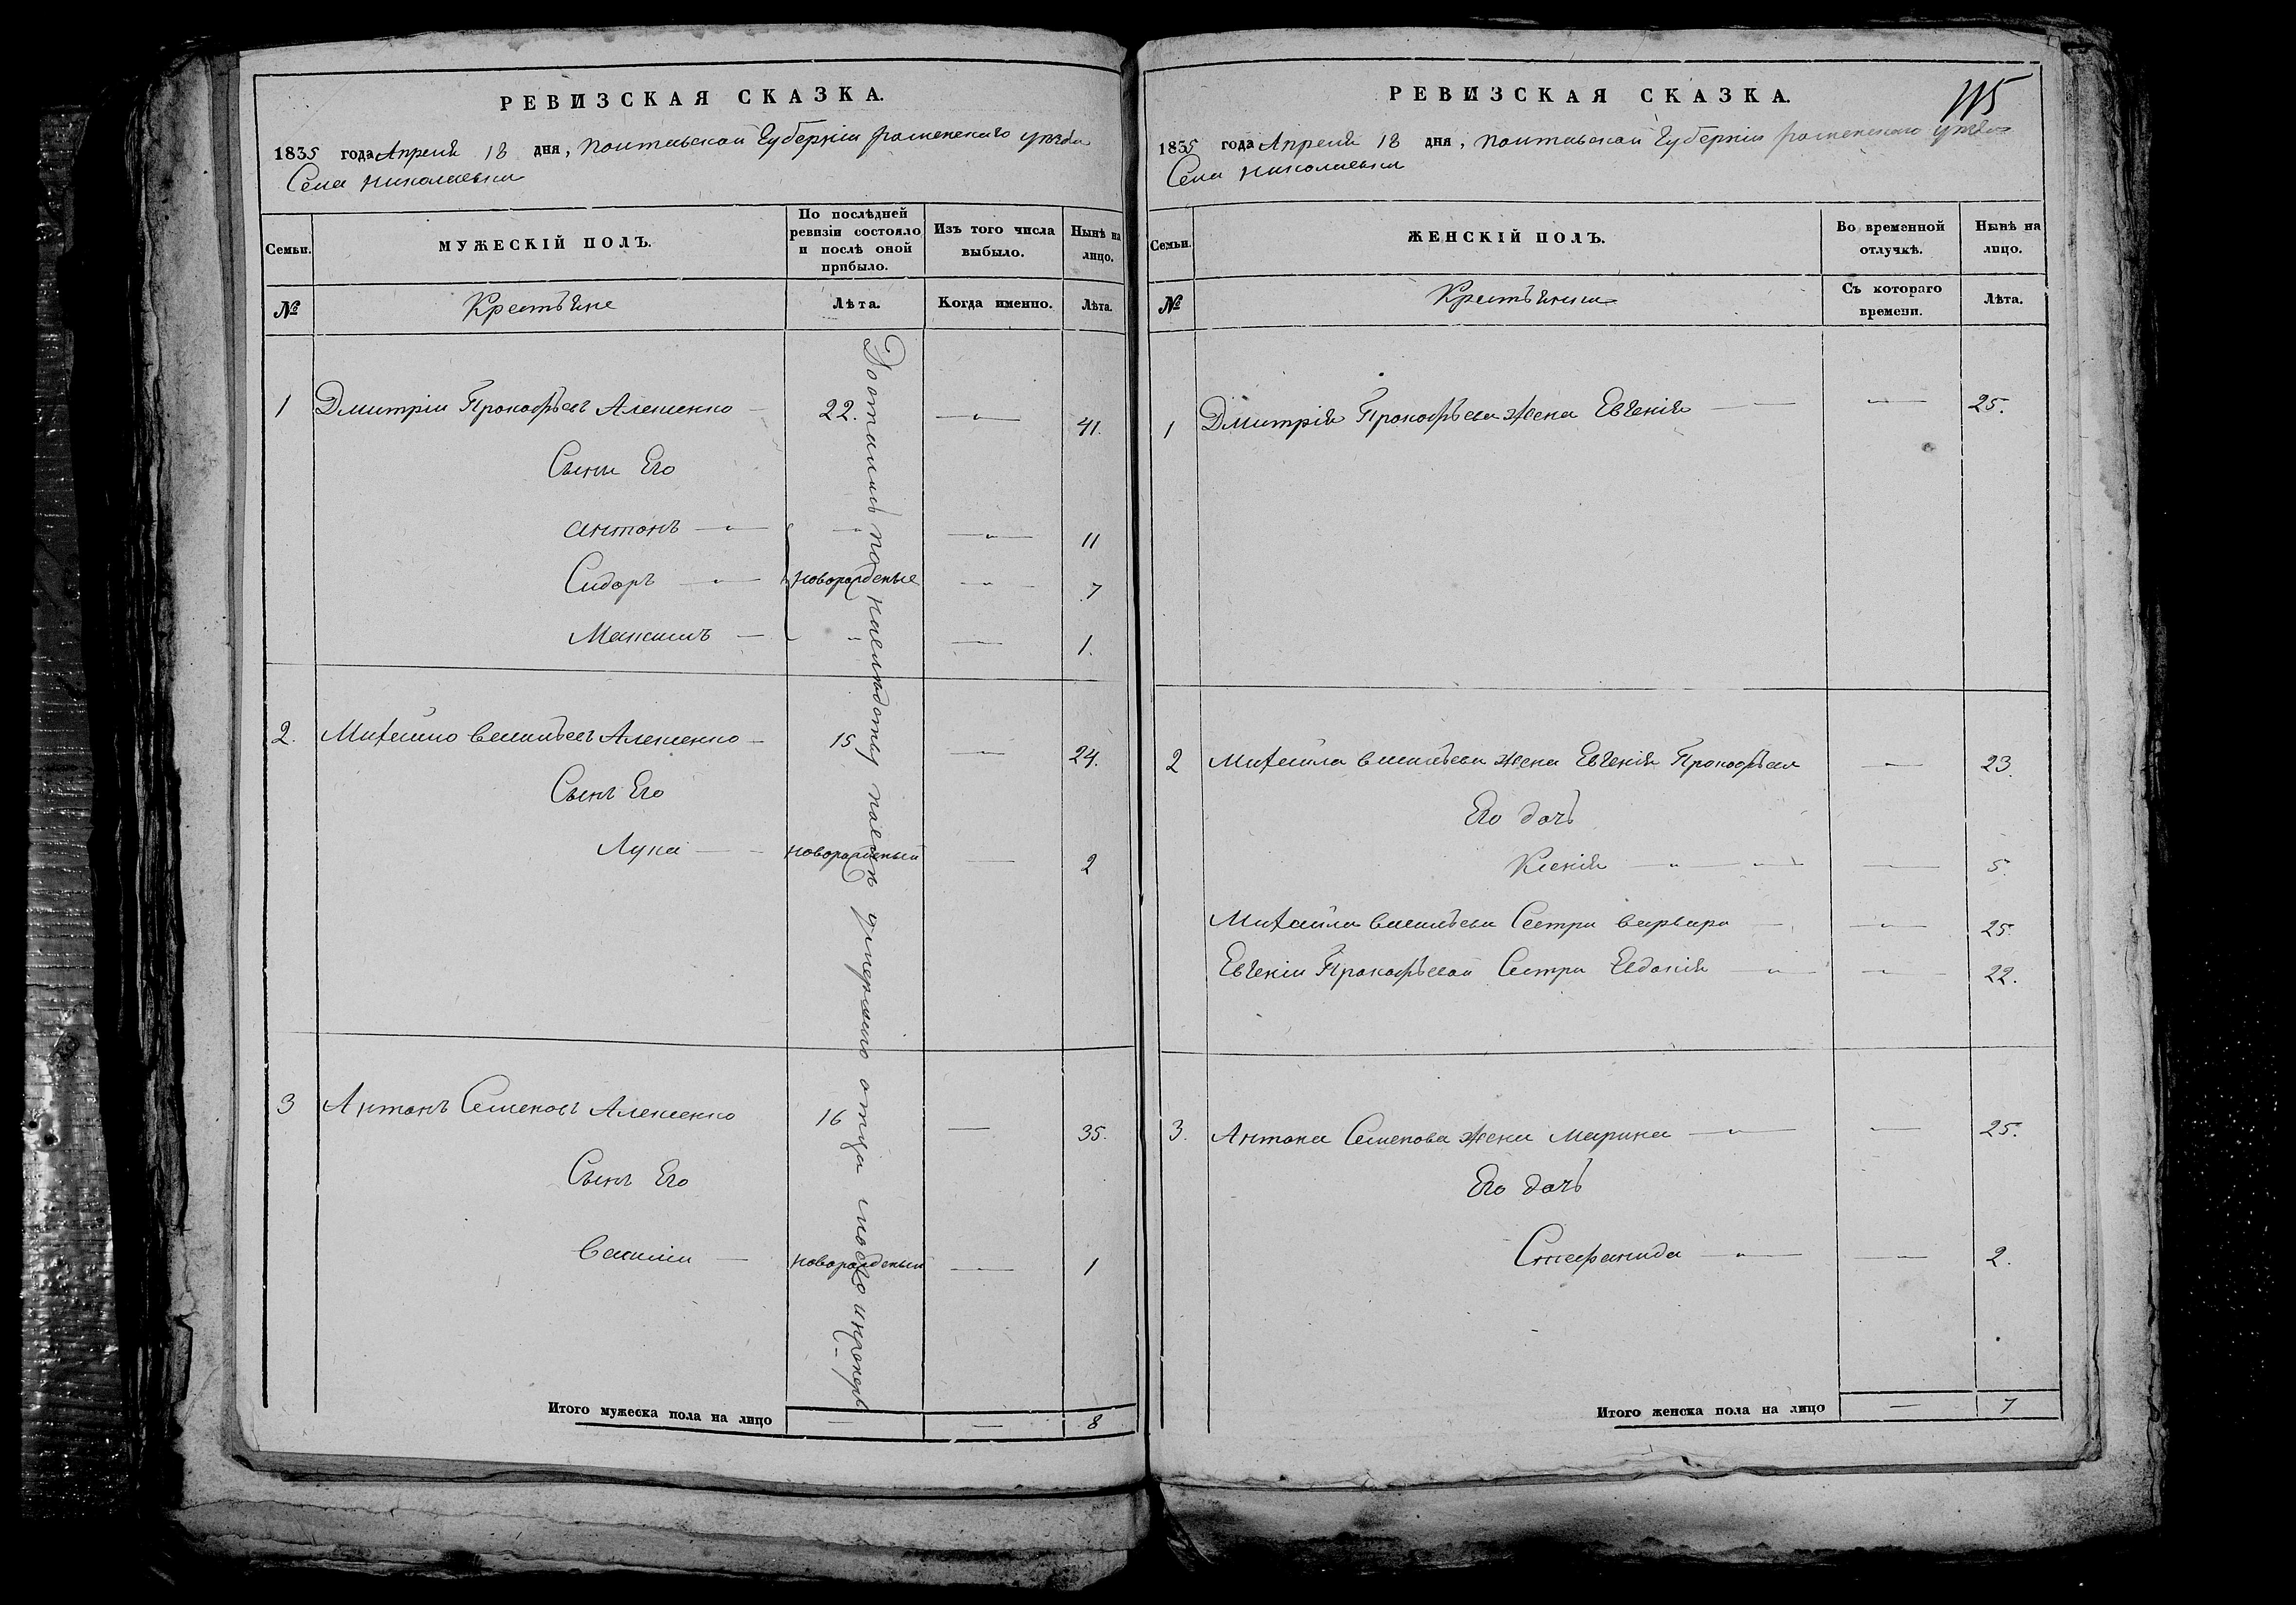 РЕВИЗСКАЯ СКАЗКА.
1835 года Апреля 18 дня, Полтавской Губерніи роменскаго уезда
Села Николаевки
Семьи.
МУЖЕСКІЙ ПОЛЪ.
По послѣдней ревизіи состояло и послѣ оной прибыло.
Изъ того числа выбыло.
Нынѣ на лицо.
№
Крестьяне
Лѣта.
Когда именно.
Лѣта.
1 Дмитріи Прокофьевъ Алешенко 22. 41.
Сыны Его
антонъ 11
Сидоръ новорожденые 7
Максимъ 1.
2. Михайло васильевъ Алешенко 15 24.
Сынъ Его
Лука новорожденыи 2
3 Антонъ Семеновъ Алешенко 16 35.
Сынъ Его
Василіи новорожденыи 1
Достались по наследству после умершаго отца
Итого мужеска пола на лицо 8
115
РЕВИЗСКАЯ СКАЗКА.
1835 года Апреля 18 дня, Полтавской Губерніи роменскаго уезда
Села Николаевки
Семьи.
ЖЕНСКІЙ ПОЛЪ.
Во временной отлучкѣ.
Нынѣ на лицо.
№
Крестьянки
Съ котораго времени.
Лѣта.
1 Дмитрія Прокофьева жена Евгенія 25.
2 Михайла васильева жена Евгенія Прокофьева 23.
Его дочь
Ксенія 5.
Михайла васильева Сестра варвара 25.
Евгеніи Прокофьевой Сестра Евдокія 22.
3. Антона Семенова жена Марина 25.
Его дочь
Стефанида 2.
Итого женска пола на лицо 7